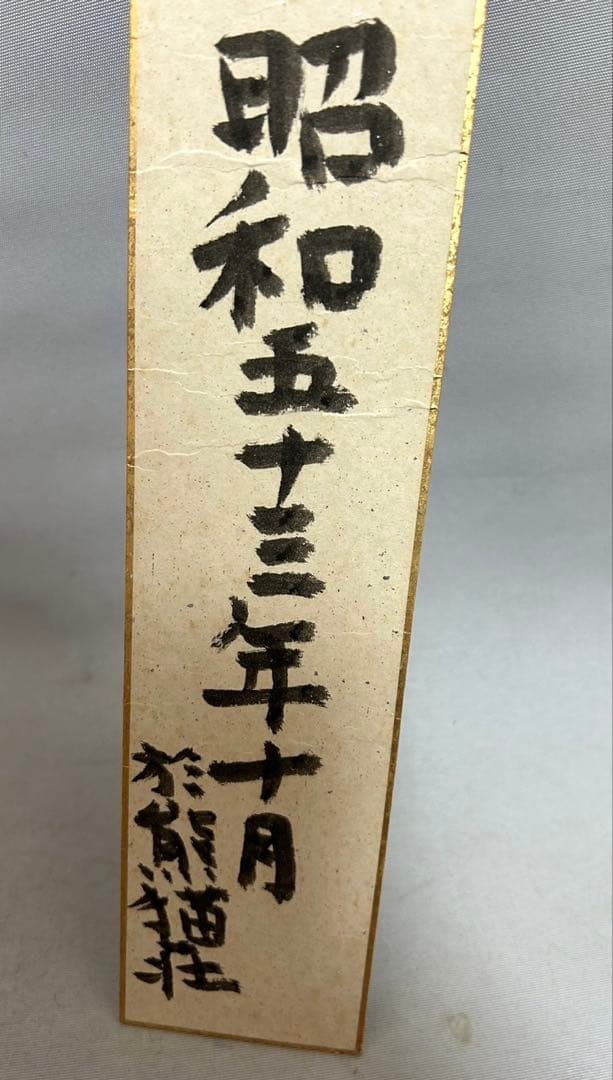 昭和五十三年十月
於熊猫荘